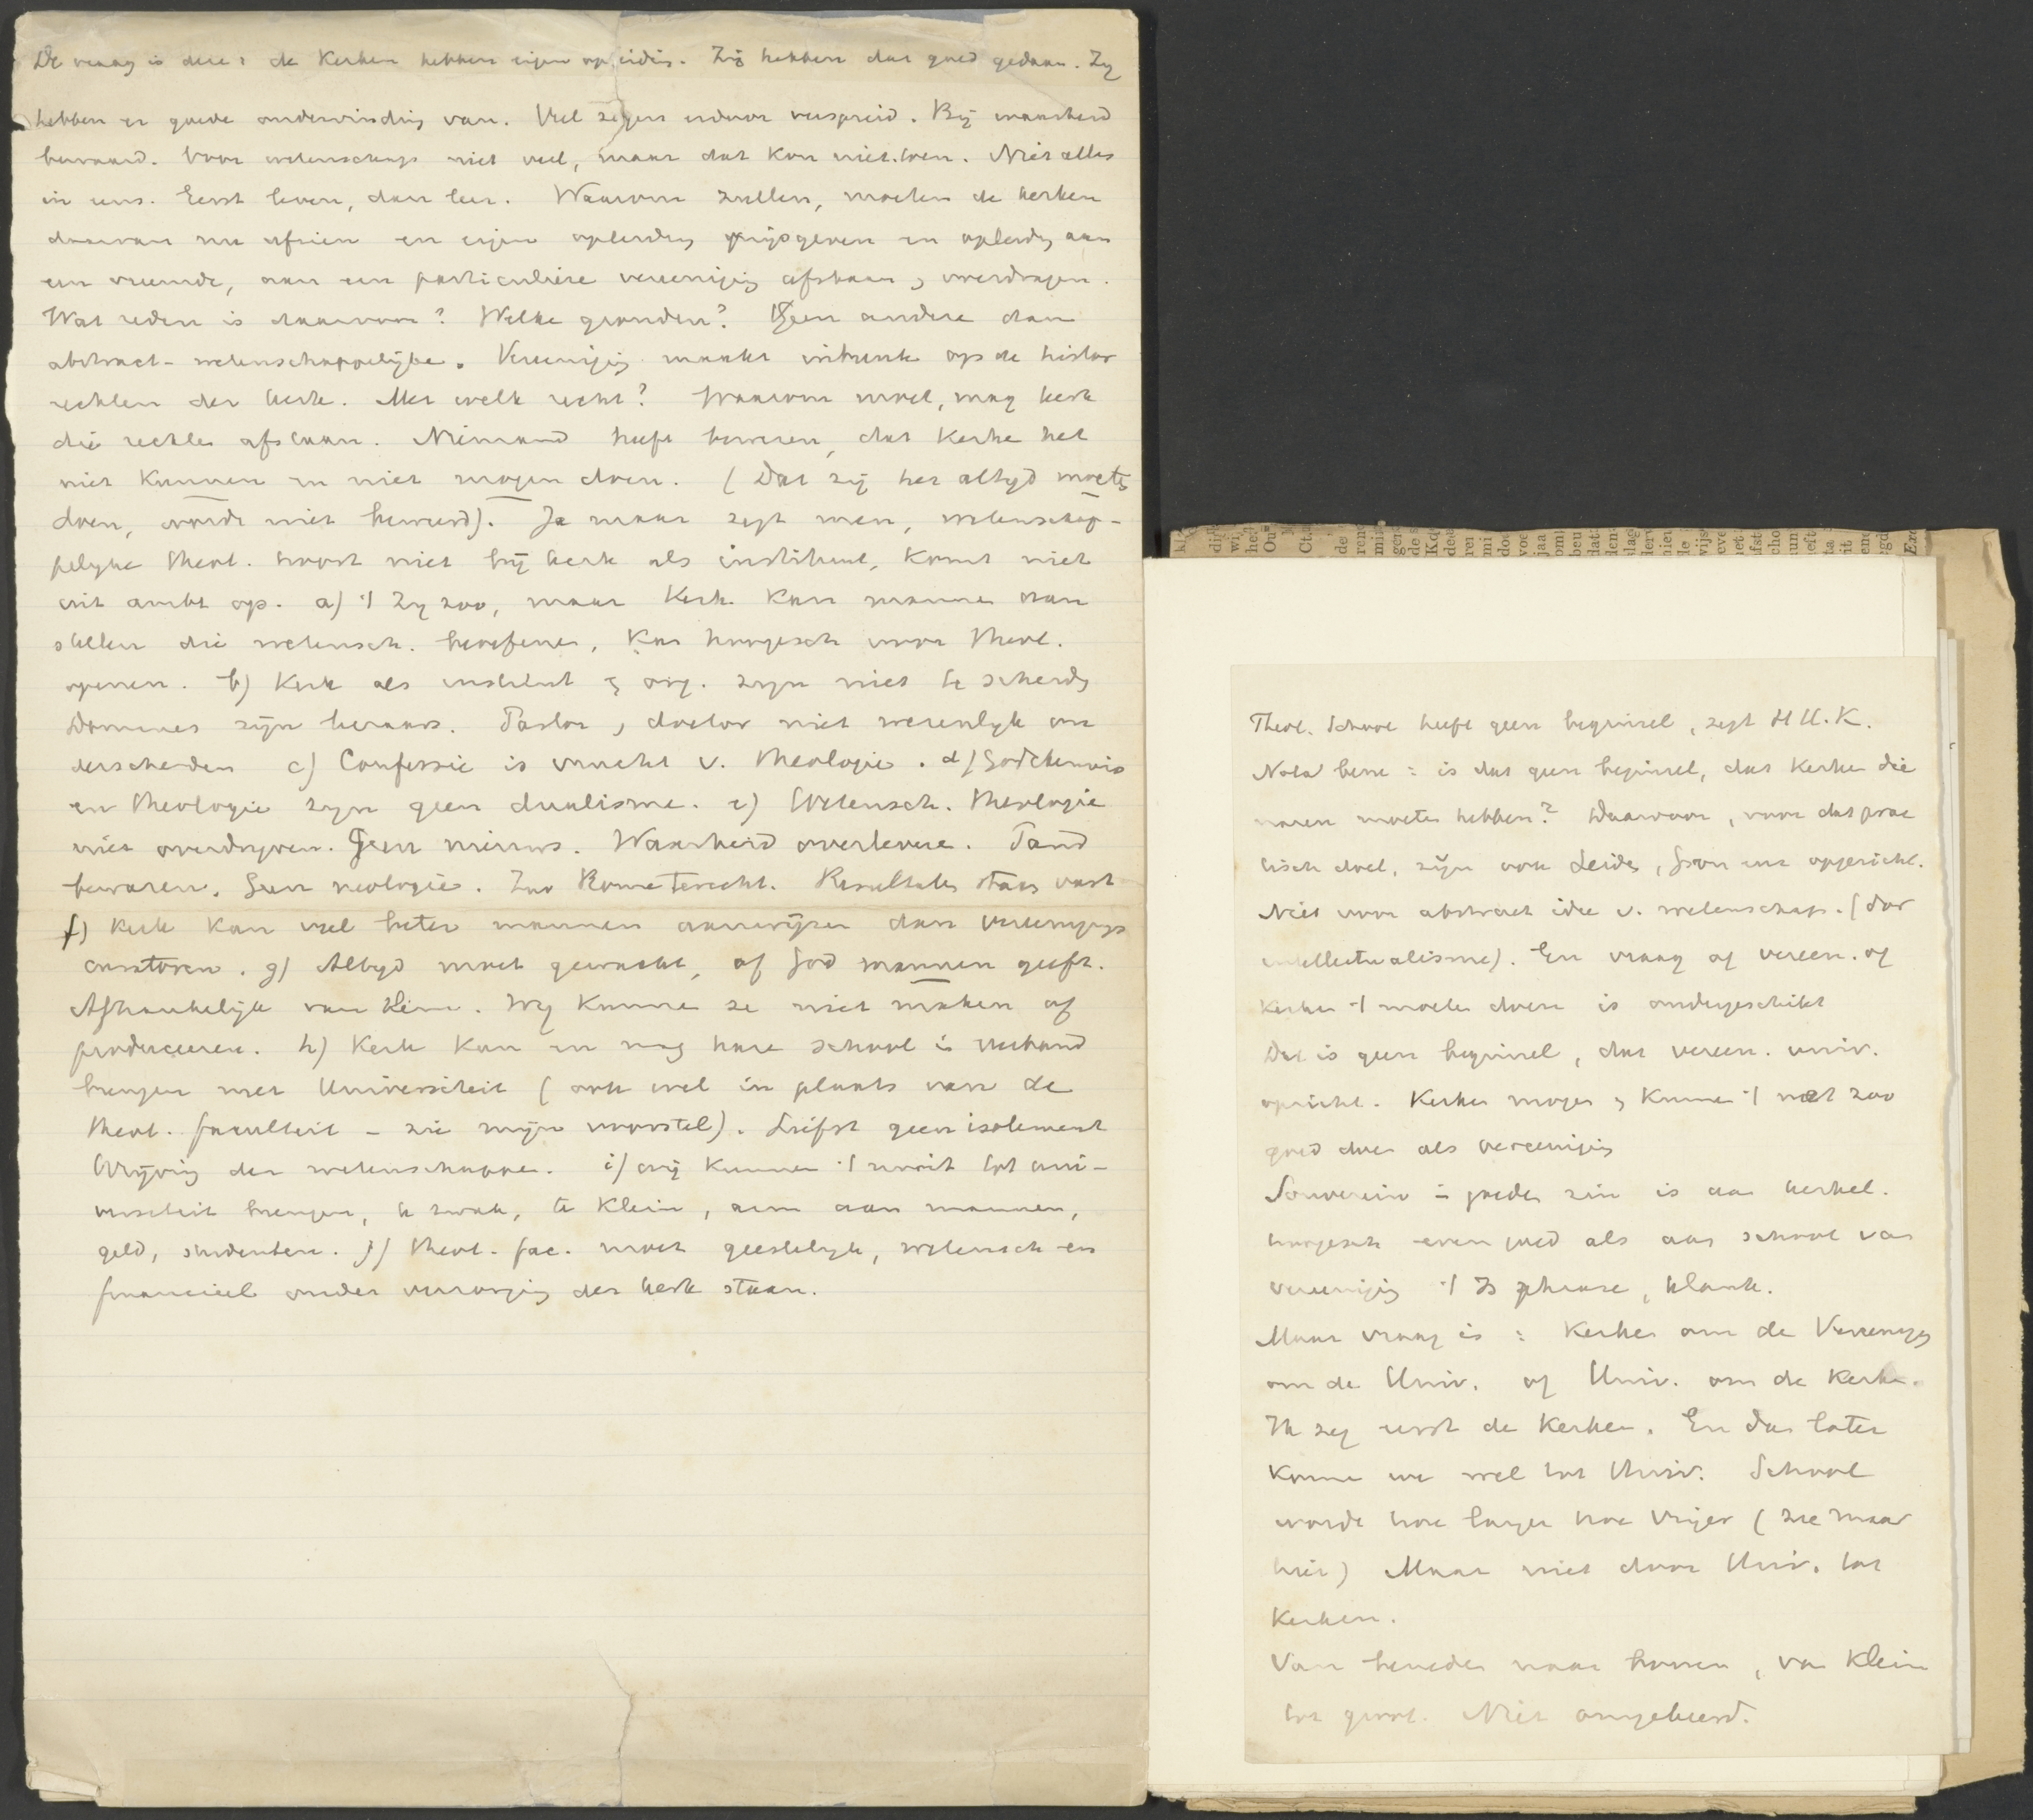 De vraag is deze: de Kerken hebben eigen opleiding. Zij hebben dat goed gedaan. Zij
hebben er goede ondervinding van. Veel zegen erdoor verspreid. Bij waarheid
bewaard. Voor wetenschap niet veel, maar dat kon niet. Niet alles
in eens. Eerst leven, dan leer. Waarom zullen, moeten de kerken
daarvan nu afzien en eigen opleiding prijsgeven en opleidg aan
een vreemde, aan een particuliere vereeniging afstaan, overdragen.
Wat reden is daarvoor? Welke gronden? Geen andere dan
abstract-wetenschappelijke. Vereenigig maakt inbreuk op de histor
rechten der kerk. Met welk recht? Waarom moet, mag kerk
die rechten afstaan. Niemand heeft bewezen, dat Kerke het
niet kunnen en niet mogen doen. (Dat zij het altijd moete
doen, wordt niet beweerd). Ja maar zegt men, wetenschap-
pelijke theol. hoort niet bij kerk als instituut, komt niet
uit ambt op. a) 't Zij zoo, maar Kerk kan manne aan
stellen die wetensch. beoefenen, Kan hoogesch voor theol.
openen. b) Kerk als instituut & org. zijn niet te scheidg
Dominees zijn leeraars. Pastor, doctor niet wezenlijk on
derscheiden c) Confessie is vrucht v. theologie. d) Godskennis
en theologie zijn geen dualisme. e) Wetensch. theologie
niet overdrijven. Geen nieuws. Waarheid overlevere. Pand
bewaren. Geen neologie. Zoo Rome terecht. Resultate staan vast
f) Kerk kan veel beter mannen aanwijzen dan vereenigings
curatoren. g) Altijd moet gewacht, of God mannen geeft.
Afhankelijk van Hem. Wij kunne ze niet maken of
produceeren. h) Kerk kan en mag hare school in verband
brengen met Universiteit (ook wel in plaats van de
theol. faculteit - zie mijn voorstel). Liefst geen isolement
Wrijving der wetenschappe. i) wij kunnen 't nooit tot uni-
versiteit brengen, te zwak, te klein, arm aan mannen,
geld, studenten. j) theol. fac. moet geestelijk, wetensch en
financieel onder verzorging der kerk staan.
Theol. School heeft geen beginsel, zegt H.H.K.
Nota bene: is dat geen beginsel, dat Kerke die
naren moete hebben? Daarvoor, voor dat prac
tisch doel, zijn ook Leide, enz opgericht.
Niet voor abstract idee v. wetenschap. (dor
intellectualisme). En vraag of vereen. of
Kerke 't moete doen is ondergeschikt
Dat is geen beginsel, dat vereen. univ.
opricht. Kerke moge & kunne 't net zoo
goed doen als vereeniging
Souverein in goede zin is aan kerkel.
hoogesch even goed als aan school van
vereenigig 't Is phrase, klank.
Maar vraag is: Kerke om de Vereenigg
om de Univ. of Univ. om de Kerke.
Ik zeg eerst de Kerken. En dan later
kome we wel tot Univ. School
worde hoe langer hoe vrijer (zie maar
hier) Maar niet door Univ. tot
Kerken.
Van beneden naar boven, van klein
tot groot. Niet omgekeerd.